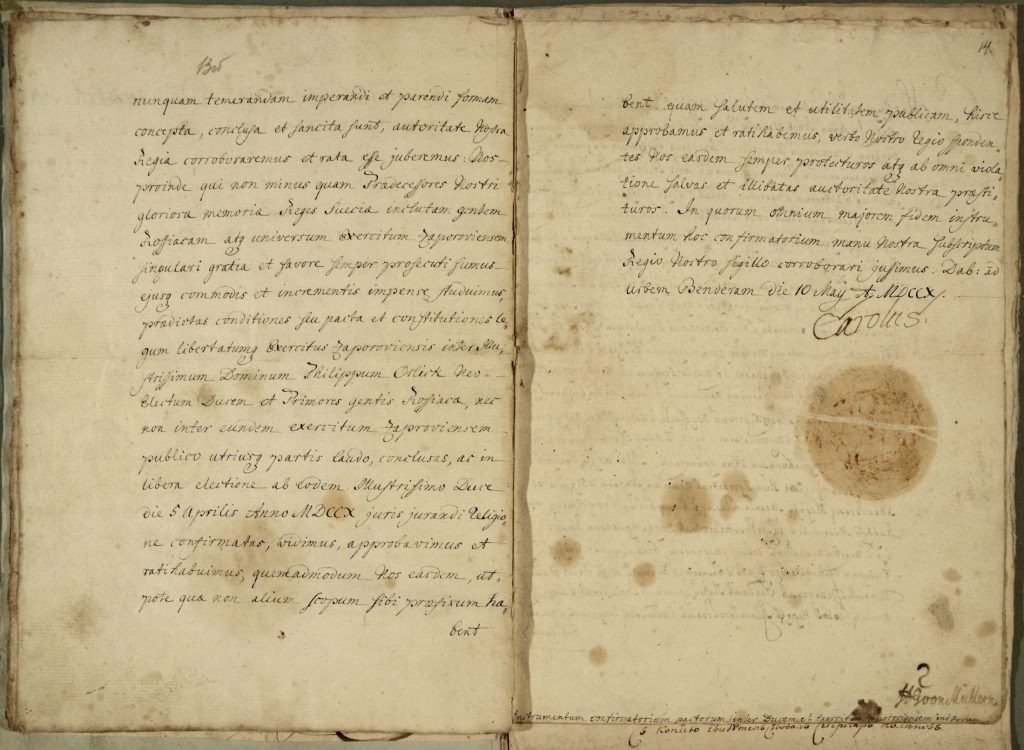 nunquam temerandam imperandi et parendi formam
concepta, conclusa et sancita sunt, autoritate Nostra
Regia corroboraremus et rata esse juberemus: Nos
proinde qui non minus quam Prædecessores Nostri
gloriosæ memoriæ Reges Sueciæ inclutam gentem
Rossiacam atq universum Exercitum Zaporoviensem
singulari gratia et favore semper prosecuti sumus
ejusq commodis et incrementis impense studuimus,
prædictas conditiones seu pacta et constitutiones le-
gum libertatumq Exercitus Zaporoviensis inter Illu-
strissimum Dominum Philippum Orlick Neo-
Electum Ducem et Primores gentis Rossiacæ, nec
non inter eundem exercitum Zaproviensem
publico utriusq partis laudo, conclusas, ac in
libera electione ab eodem Illustrissimo Duce
die 5 Aprilis Anno MDCCX juris jurandi Religio-
ne confirmatas, vidimus, approbavimus et
ratihabuimus, quemadmodum Nos easdem, ut-
pote quæ non alium scopum sibi præfixum ha-
bent
14
bent quam salutem et utilitatem publicam, hisce
approbamus et ratihabemus, verbo Nostro Regio sponden-
tes Nos easdem semper protecturos atq ab omni viola-
tione salvas et illibatas auctoritate Nostra præsti-
turos. In quorum omnium majorem fidem instru-
mentum hoc confirmatorium manu Nostra subscriptum
Regio Nostro sigillo corroborari jussimus. Dab: ad
Urbem Benderam die 10 Maij A. MDCCX.
Carolus.
von Müllern
Instrumentum confirmatorium pactorum inter Ducem et Exercitum